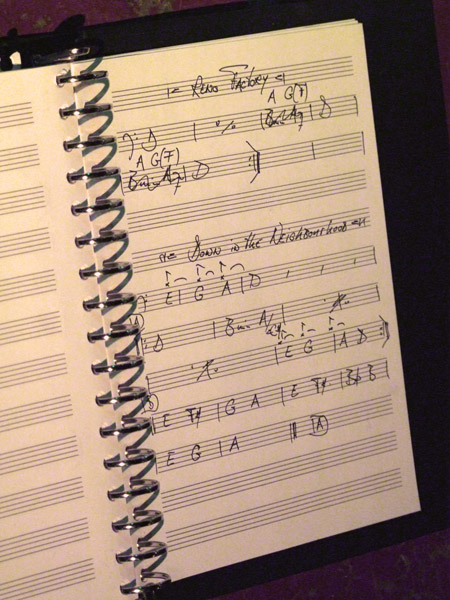 Reno Factory
A G(F)
D | % | Bm Am | D
A G(F)
Bm Am | D
Down in the Neighbourhood
E | G A | D
A
D | Bm A/
E G | A D
B
E F# | G A | E F# | Bb B
E G | A A